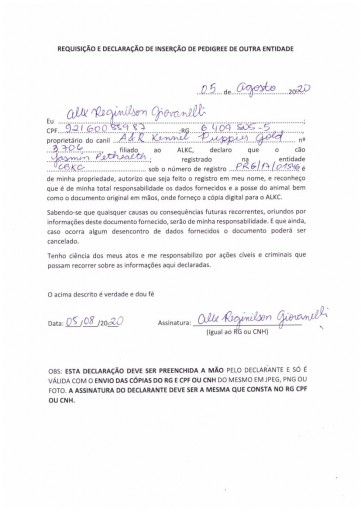 REQUISIÇÃO E DECLARAÇÃO DE INSERÇÃO DE PEDIGREE DE OUTRA ENTIDADE
05 de agosto 2020
Eu Alle Reginilson Giovanelli
CPF 92160088987 RG 6 409 805-5
proprietário do canil A&R Kennel Puppies Gold nº
3706, filiado ao ALKC, declaro que o cão
Yasmin registrado na entidade
sob o número de registro é
de minha propriedade, autorizo que seja feito o registro em meu nome, e reconheço
que é de minha total responsabilidade os dados fornecidos e a posse do animal bem
como o documento original em mãos, onde forneço a cópia digital para o ALKC.
Sabendo-se que quaisquer causas ou consequências futuras recorrentes, oriundos por
informações deste documento fornecido, serão de minha responsabilidade. E que ainda,
caso ocorra algum desencontro de dados fornecidos o documento poderá ser
cancelado.
Tenho ciência dos meus atos e me responsabilizo por ações cíveis e criminais que
possam recorrer sobre as informações aqui declaradas.
O acima descrito é verdade e dou fé
Data: 05/08/2020 Assinatura: Alle Reginilson Giovanelli
(Igual ao RG ou CNH)
OBS: ESTA DECLARAÇÃO DEVE SER PREENCHIDA A MÃO PELO DECLARANTE E SÓ É
VÁLIDA COM O ENVIO DAS CÓPIAS DO RG E CPF OU CNH DO MESMO EM JPEG, PNG OU
FOTO. A ASSINATURA DO DECLARANTE DEVE SER A MESMA QUE CONSTA NO RG CPF
OU CNH.